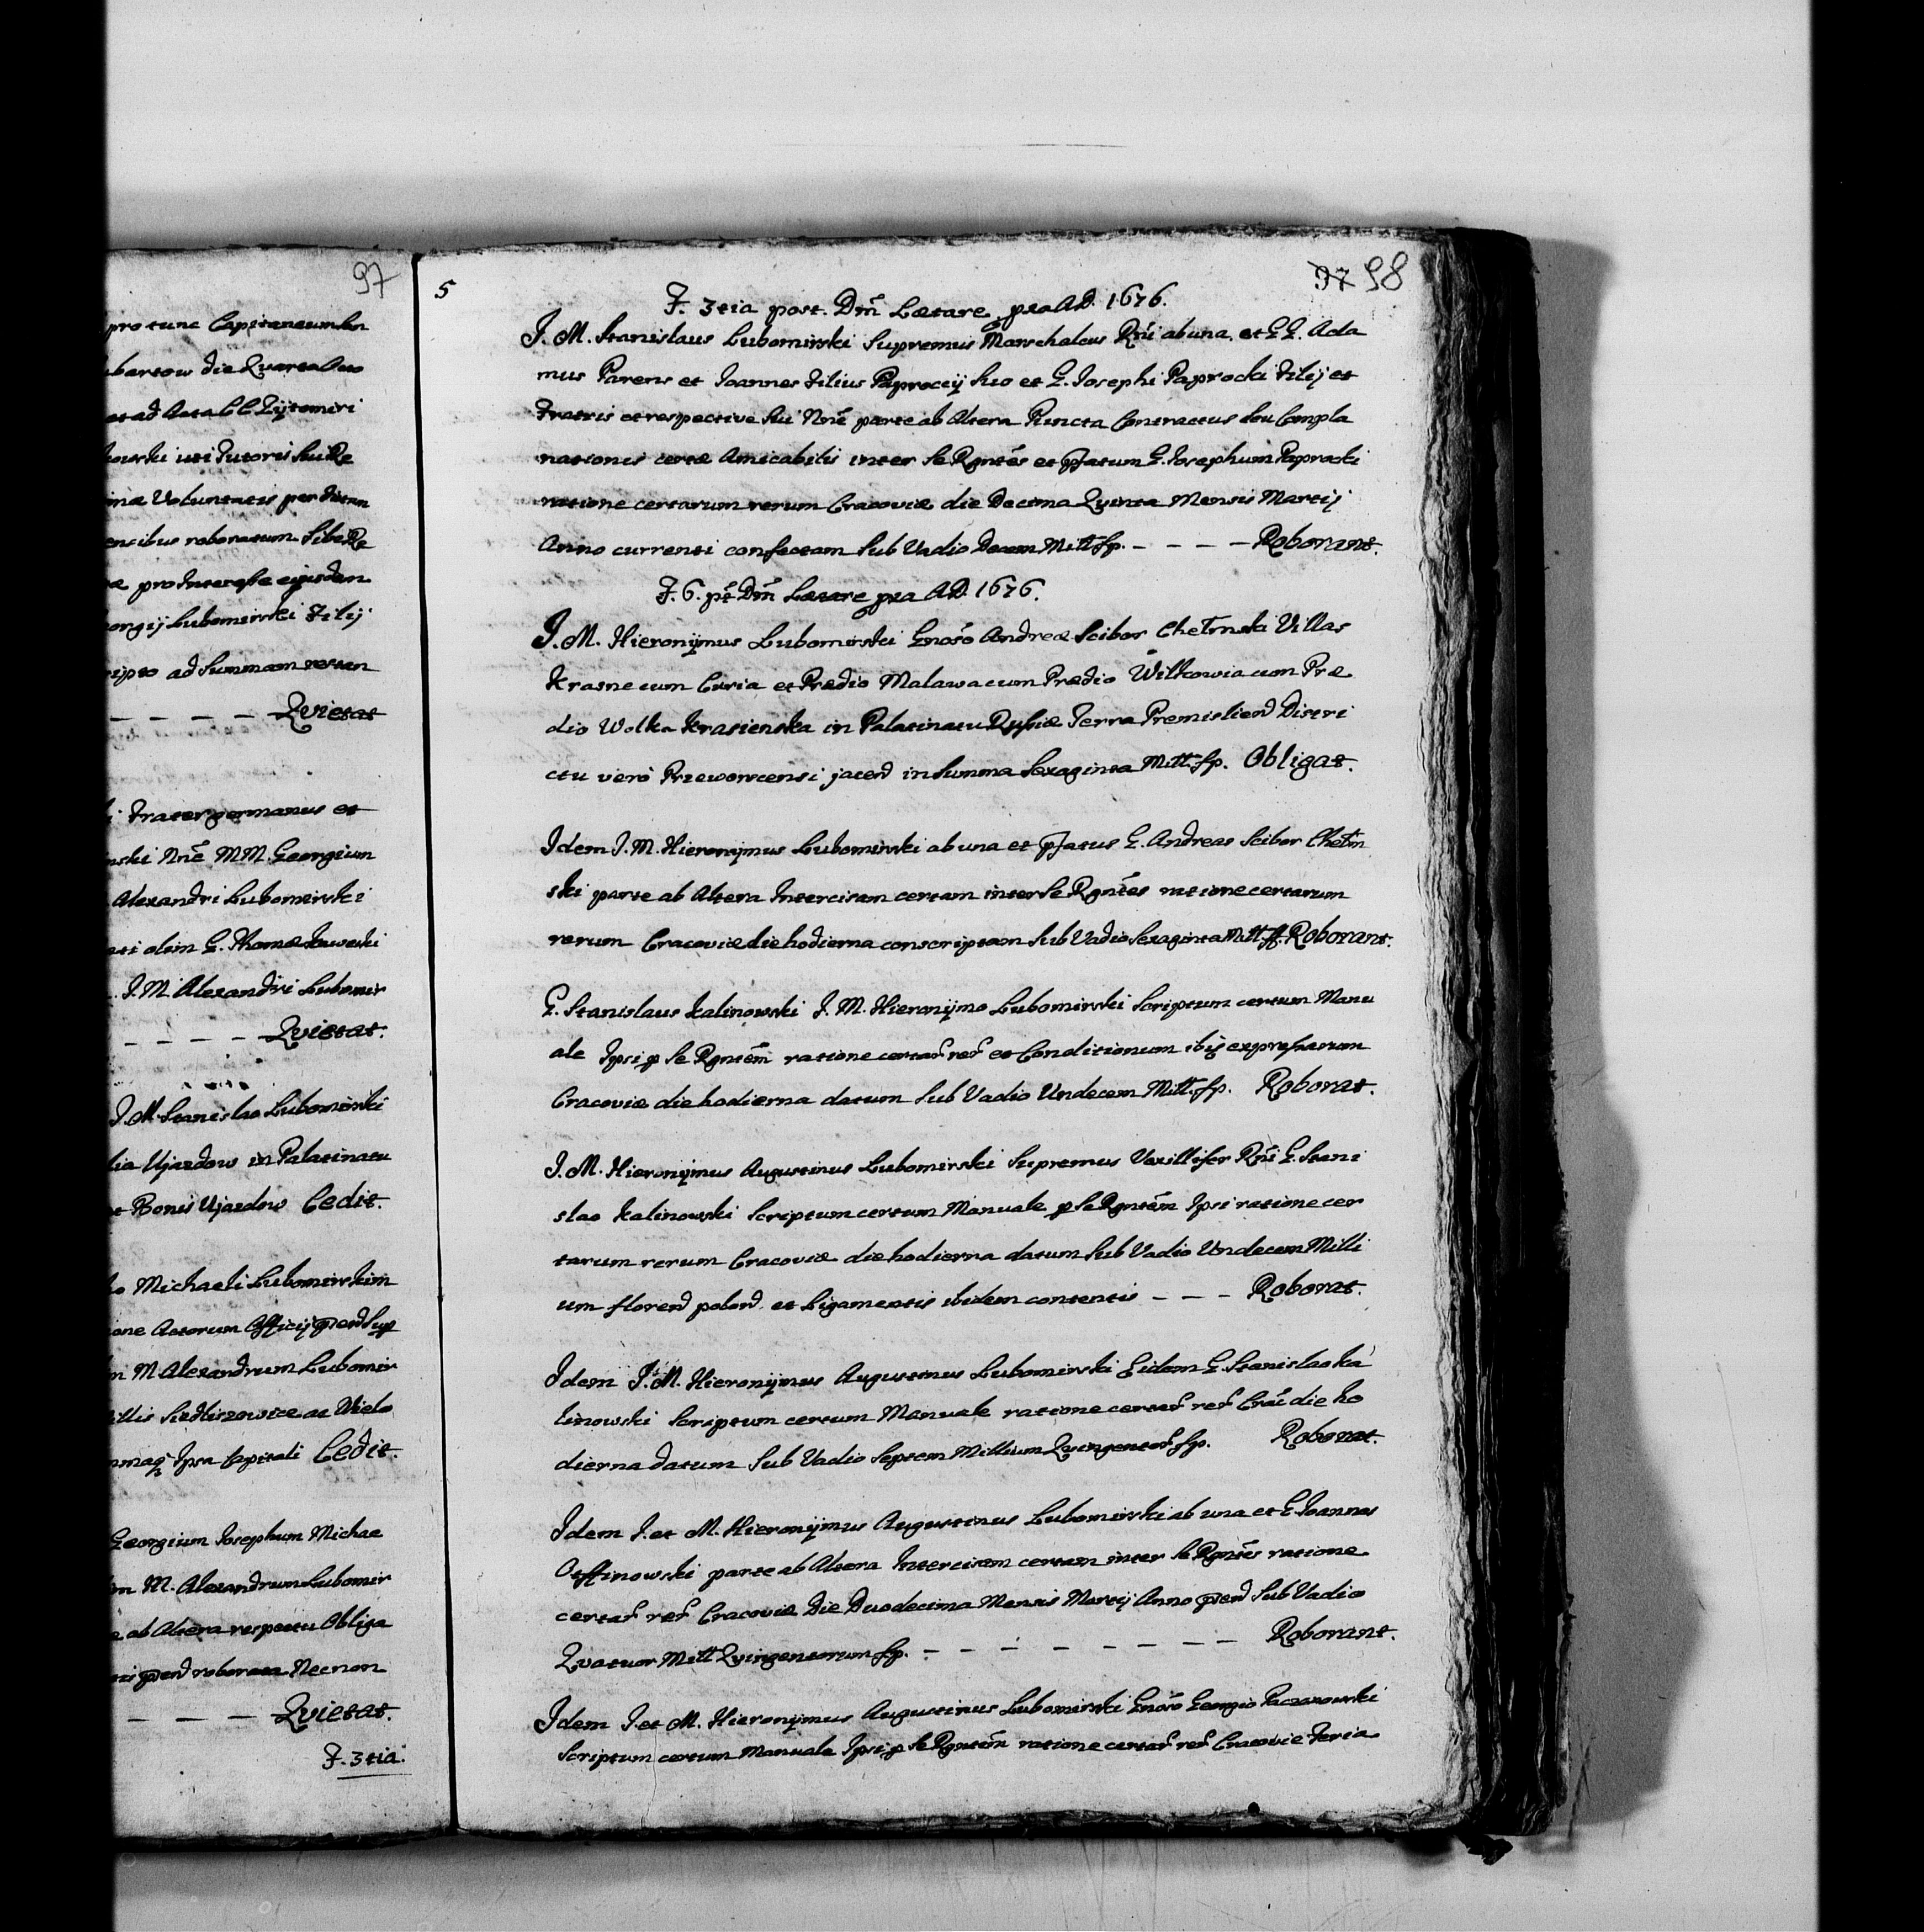 97
pro tunc Capitaneum
bartow die Quarta
et ad Acta CC. Zijtomiri
kowski uti Tutoris sui Re
mæ Voluntatis per
encibus roboratum sibi Re
æ pro Interesse eiusdem
orgij Lubomirski Filij
ripto ad Summam
– – – – Quietat
Frater germanus et
nski Nnẽ MM. Georgium
Alexandri Lubomirski
olim G. Thomæ
J.M. Alexandri Lubomir
– – – – Quietat.
J.M. Stanislao Lubomirski
lia Ujazdow in Palatinatu
et Bonis Ujazdow Cedit.
o Michaeli Lubomirskim
ione Actorum Officij
M Alexandrum Lubomir
illis Siedliszowice ac Wielo
Ipsa Capitali Cedit.
Georgium Josephum Michae
m M. Alexandrum Lubomir
e ab Altera respectu Obliga
roborata Necnon
– – – Quietat.
F. 3tia.
5
97 98
F. 3tia post. Dm̃ Lætare pxa AD. 1676.
J. M. Stanislaus Lubomirski Supremus Marschalcus Rñi ab una, et GG. Ada
mus Parens et Joannes Filius Paproccij suo et G. Josephi Paprocki Filij et
Fratris et respective sui Nnẽ parte ab Altera Puncta Contractus seu Compla
nationis certæ Amicabilis inter se Rgntẽs et pfatum G. Josephum Paprocki
ratione certarum rerum Cracoviæ die Decima Quinta Mensis Martij
Anno currenti confectam sub Vadio Decem Mill. fp. – – – – Roborant.
F. 6. pt̃ Dm̃ Lætare pxa AD. 1676.
J. M. Hieronijmus Lubomirski Gnõso Andreæ Scibor Chełmski Villas
Krasne cum Curia et Prædio Malawa cum Prædio Wilkowia cum Præ
dio Wolka Krasienska in Palatinatu Russiæ Terra Premislien̄ Distri
ctu verò Przeworscensi jacen̄ in Summa Sexaginta Mill. fp. Obligat.
Idem J. M. Hieronijmus Lubomirski ab una et pfatus G. Andreas Scibor Chełm
ski parte ab Altera Intercisam certam inter se Rgntẽs ratione certarum
rerum Cracoviæ die hodierna conscriptam sub Vadio Sexaginta Mill ff. Roborant.
G. Stanislaus Kalinowski J. M. Hieronijmo Lubomirski Scriptum certum Manu
ale Ipsi p se Rgntẽm ratione certar̃ rer̃ et Conditionum ibi expressarum
Cracoviæ die hodierna datum sub Vadio Undecem Mill. fp. Roborat.
J. M. Hieronijmus Augustinus Lubomirski Supremus Vexillifer Rñi G. Stani
slao Kalinowski Scriptum certum Manuale p se Rgntẽm Ipsi ratione cer
tarum rerum Cracoviæ die hodierna datum sub Vadio Undecem Milli
um floren̄ polon̄. et Ligamentis ibidem contentis – – – Roborat.
Idem J. M. Hieronijmus Augustinus Lubomirski Eidem G. Stanislao Ka
linowski Scriptum certum Manuale ratione certar̃ rer̃ Crac̃ die ho
dierna datum sub Vadio Septem Millium Quingentor̃ fp. Roborat.
Idem J. et M. Hieronijmus Augustinus Lubomirski ab una et G. Joannes
Otffinowski parte ab Altera Intercisam certam inter se Rgntẽs ratione
certar̃ rer̃ Cracoviæ Die Duodecima Mensis Martij Anno pn̄d sub Vadio
Quatuor Mill Quingentorum fp. – – – – – – – – Roborant.
Idem J. et M. Hieronijmus Augustinus Lubomirski Gnõso Georgio Paczanowski
Scriptum certum Manuale Ipsi p se Rgntẽm ratione certar̃ rer̃ Cracoviæ Feria